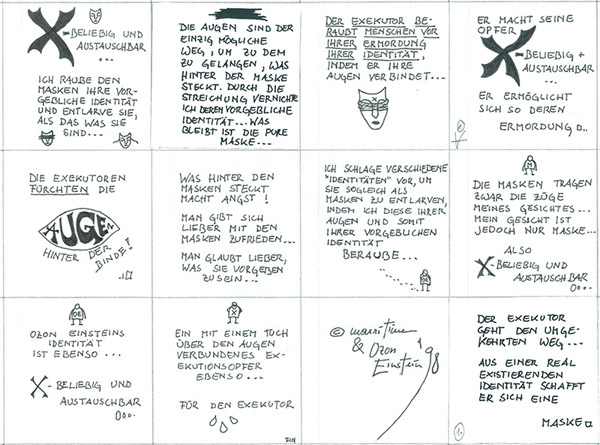 X-BELIEBIG UND
AUSTAUSCHBAR
...
ICH RAUBE DEN
MASKEN IHRE VOR-
GEBLICHE IDENTITÄT
UND ENTLARVE SIE,
ALS DAS WAS SIE
SIND...
DIE AUGEN SIND DER
EINZIG MÖGLICHE
WEG, UM ZU DEM
ZU GELANGEN, WAS
HINTER DER MASKE
STECKT. DURCH DIE
STREICHUNG VERNICHTE
ICH DEREN VORGEBLICHE
IDENTITÄT... WAS
BLEIBT IST DIE PURE
MASKE...
DER EXEKUTOR BE-
RAUBT MENSCHEN VOR
IHRER ERMORDUNG
IHRER IDENTITÄT,
INDEM ER IHRE
AUGEN VERBINDET...
X
ER MACHT SEINE
OPFER
X-BELIEBIG +
AUSTAUSCHBAR
...
ER ERMÖGLICHT
SICH SO DEREN
ERMORDUNG...
DIE EXEKUTOREN
FÜRCHTEN DIE
AUGEN
HINTER DER BINDE!
WAS HINTER DEN
MASKEN STECKT
MACHT ANGST!
MAN GIBT SICH
LIEBER MIT DEN
MASKEN ZUFRIEDEN...
MAN GLAUBT LIEBER,
WAS SIE VORGEBEN
ZU SEIN...
ICH SCHLAGE VERSCHIEDENE
"IDENTITÄTEN" VOR, UM
SIE SOGLEICH ALS
MASKEN ZU ENTLARVEN,
INDEM ICH DIESE IHRER
AUGEN UND SOMIT
IHRER VORGEBLICHEN
IDENTITÄT
BERAUBE...
OE
M
DIE MASKEN TRAGEN
ZWAR DIE ZÜGE
MEINES GESICHTES...
MEIN GESICHT IST
JEDOCH NUR MASKE...
ALSO
X-BELIEBIG UND
AUSTAUSCHBAR
OE
OZON EINSTEINS
IDENTITÄT
IST EBENSO...
X-BELIEBIG UND
AUSTAUSCHBAR
X
EIN MIT EINEM TUCH
ÜBER DEN AUGEN
VERBUNDENES EX-
EKUTIONSOPFER
EBENSO...
FÜR DEN EXEKUTOR
FIN
©
& Ozon
Einstein '98
DER EXEKUTOR
GEHT DEN UMGE-
KEHRTEN WEG...
AUS EINER REAL
EXISTIERENDEN
IDENTITÄT SCHAFFT
ER SICH EINE
MASKE
1.